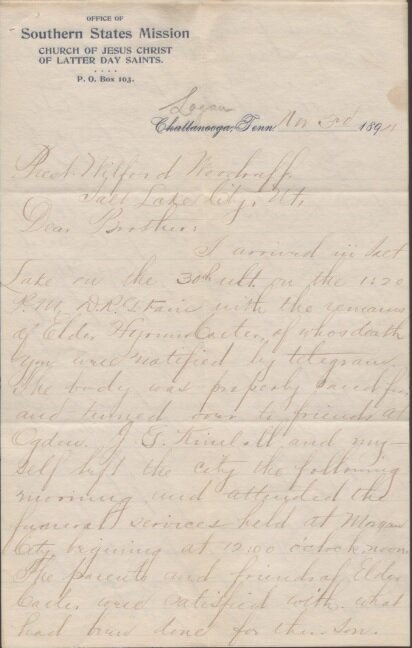 OFFICE OF
Southern States Mission
CHURCH OF JESUS CHRIST
OF LATTER DAY SAINTS.
....
P. O. Box 103.
Logan
Chattanooga, Tenn Nov 3d 189
Prest. Wilford Woodruff,
Salt Lake City, Ut.
Dear Brother:
I arrived in Salt
Lake on the 30th ult. on the 1:20
P.M. D.R.G. with the remains
of Elder Hyrum Carter, of whos death
you were notified by telegram.
The body was properly cared for
and turned over to friends at
Ogden. J. G. Kimball and my-
self left the city the following
morning and attended the
funeral services held at Morgan
City, begining at 12:00 o'clock noon.
The parents and friends of Elder
Carter were satisfied with what
had been done for their son.